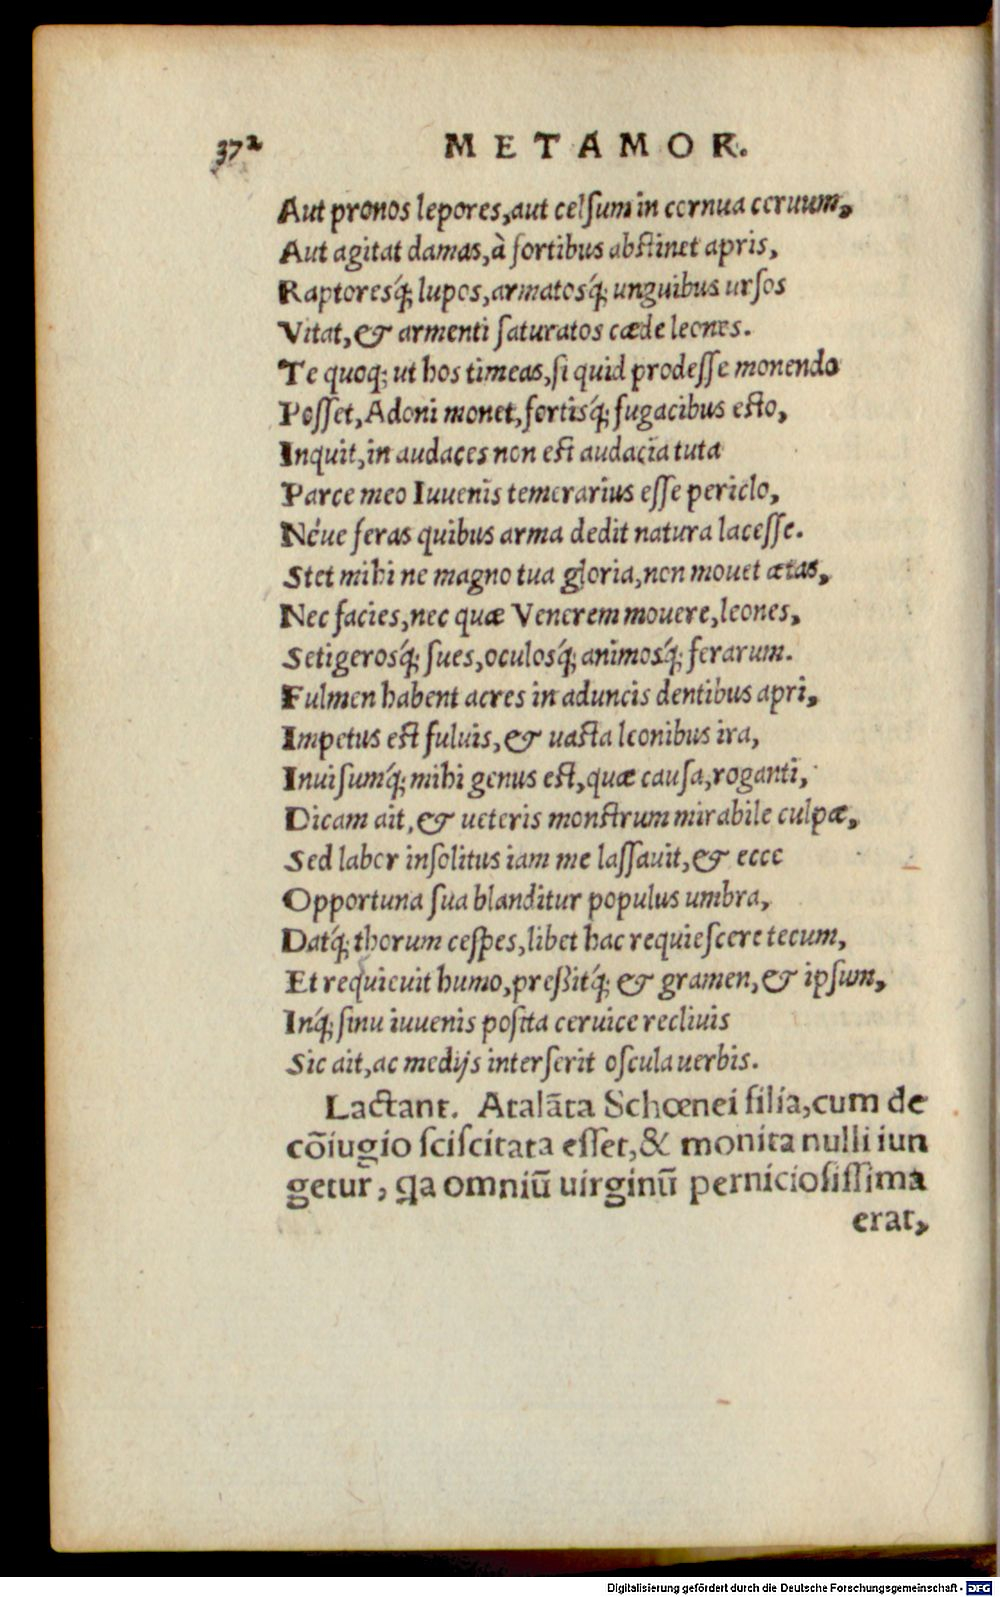 372 METAMOR.
Aut pronos lepores, aut celsum in cornua ceruum,
Aut agitat damas, à fortibus abstinet apris,
Raptoresq́; lupos, armatosq́; unguibus ursos
Vitat, & armenti saturatos cæde leones.
Te quoq; ut hos timeas, si quid prodesse monendo
Posset, Adoni monet, fortisq́; fugacibus esto,
Inquit, in audaces non est audacia tuta
Parce meo Iuuenis temerarius esse periclo,
Néue feras quibus arma dedit natura lacesse.
Stet mihi ne magno tua gloria, non mouet ætas,
Nec facies, nec quæ Venerem mouere, leones,
Setigerosq́; sues, oculosq́; animosq́; ferarum.
Fulmen habent acres in aduncis dentibus apri,
Impetus est fuluis, & uasta leonibus ira,
Inuisumq́; mihi genus est, quæ causa, roganti,
Dicam ait, & ueteris monstrum mirabile culpæ,
Sed labor insolitus iam me lassauit, & ecce
Opportuna sua blanditur populus umbra,
Datq́; thorum cespes, libet hac requiescere tecum,
Et requieuit humo, preßitq́; & gramen, & ipsum,
Inq́; sinu iuuenis posita ceruice recliuis
Sic ait, ac medijs interserit oscula uerbis.
Lactant. Atalāta Schœnei filia, cum de
cōiugio sciscitata esset, & monita nulli iun
getur, qa omniū uirginū perniciosissima
erat,
Digitalisierung gefördert durch die Deutsche Forschungsgemeinschaft - DFG